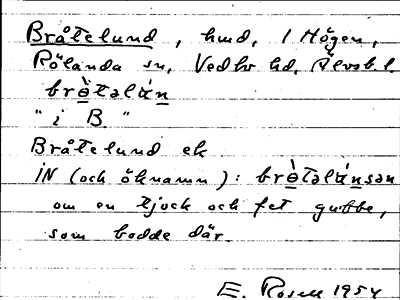 Bråtelund, hmd, 1 Högen,
Rölanda sn, Vedbo hd, Älvsb. l.
brò̠təlún̠
"i B."
Bråtelund ek
IN (och öknamn): brò̠təlún̠sən
om en tjock och fet gubbe,
som bodde där.
E. Rosell 1954